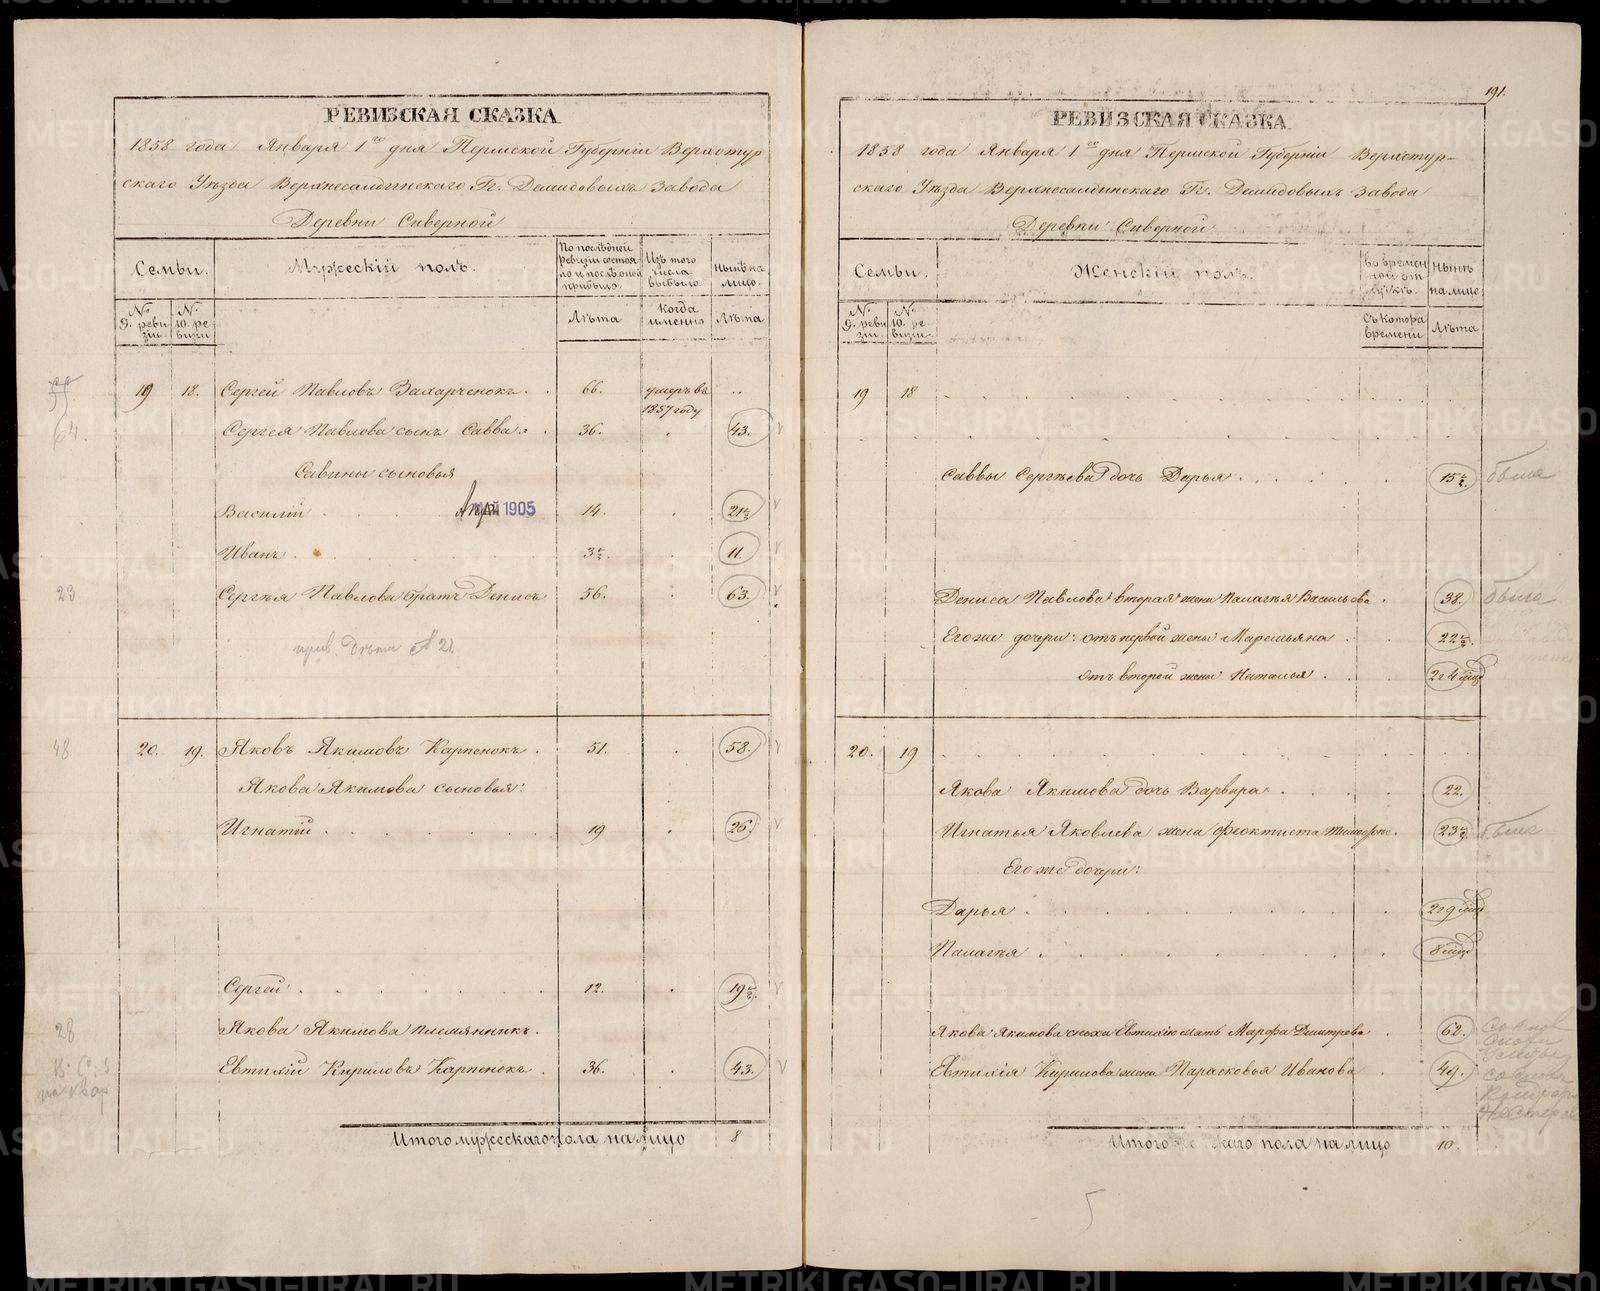 РЕВИЗСКАЯ СКАЗКА
1858 года Января 1го дня Пермской Губерніи Верхотур
скаго Уѣзда Верхнесалдинскаго Гг. Демидовыхъ Завода
Деревни Сиверной
Семьи.
Мужескій полъ.
По послѣдней ревизіи состояло и послѣ оной прибыло.
Изъ того числа выбыло.
Нынѣ на лицо.
№ 9. ревизіи
№ 10. ревизіи
Лѣта
Когда именно
Лѣта
19 18. Сергей Павловъ Захарченокъ. 66. умеръ въ 1857 году
64.
Сергея Павлова сынъ Савва. 36. 43.
Савины сыновья
Василій 14. 21½
МАЙ 1905
Иванъ 3½ 11.
23
Сергѣя Павлова братъ Денисъ 56. 63.
48
20. 19. Яковъ Якимовъ Карпенокъ. 51. 58.
Якова Якимова сыновья:
Игнатій 19 26.
Сергей 12. 19½
28
Якова Якимова племянникъ.
Евтихій Кириловъ Карпенокъ. 36. 43.
Итого мужескаго пола на лицо 8
191.
РЕВИЗСКАЯ СКАЗКА
1858 года Января 1го дня Пермской Губерніи Верхотур-
скаго Уѣзда Верхнесалдинскаго Гг. Демидовыхъ Завода
Деревни Сиверной
Семьи.
Женскій полъ.
Во временной отлучкѣ.
Нынѣ на лицо
№ 9. ревизіи
№ 10. ревизіи
Съ котора времени
Лѣта
19 18
Саввы Сергѣева дочь Дарья 15½
Дениса Павлова вторая жена Палагѣя Васильева 38.
Его же дочери: отъ первой жены Маремьяна 22½.
отъ второй жены Наталья
20. 19
Якова Якимова дочь Варвара 22.
Игнатья Яковлева жена Феоктиста 23½
Его же дочери:
Дарья
Палагѣя
Якова Якимова сноха Евтихію мать Марфа Дмитрева 62.
Евтихія Кирилова жена Парасковья Иванова 49.
Итого женскаго пола на лицо 10.
5
METRIKI.GASO-URAL.RU